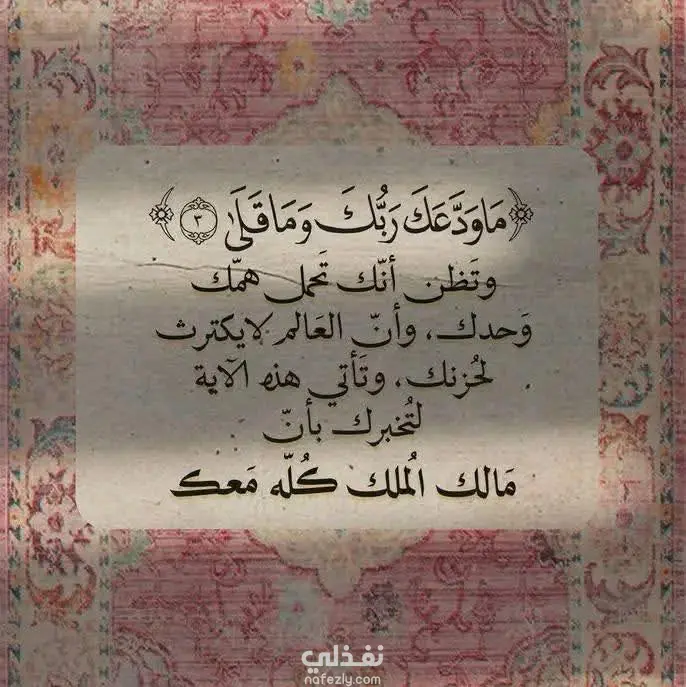 ﴿مَا وَدَّعَكَ رَبُّكَ وَمَا قَلَىٰ ٣﴾
وتَظن أنّك تَحمل همّك
وَحدك، وأنّ العَالم لايكترث
لحُزنك، وتَأتي هذه الآية
لتُخبرك بأنّ
مَالك المُلك كُلّه مَعك
نفذلي
nafezly.com